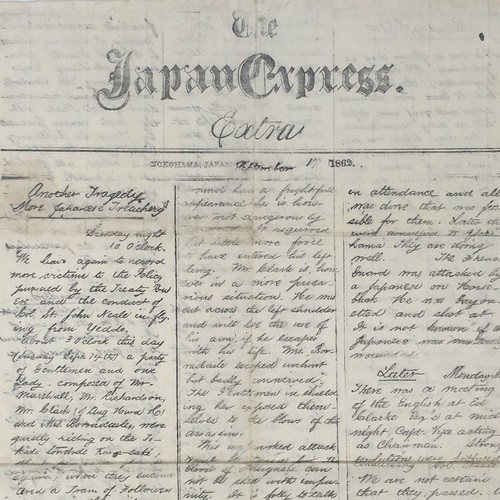 The
Japan Express.
Extra
YOKOHAMA, JAPAN September 17 1862.
Another Tragedy
More Japanese Treachery
Sunday night
10 O'clock.
We have again to record
more victims to the Policy
pursued by the Treaty Pow
ers and the conduct of
Col. St. John Neale in fly-
ing from Yeddo.
About 3 O'clock this day
Sept 14th a party
of Gentlemen and one
Lady, composed of Mr.
Marshall, Mr. Richardson,
Mr. Clark (of Aug Heard & Co)
and Mrs Borradaile, were
quietly riding on the To-
kaido towards
again, when they
and a Train of Followers
cannot had a frightful
appearance he is how-
ever not dangerously
required
but little more force
to have entered his left
lung. Mr. Clark is, how
ever in a more preca-
rious situation. He was
cut across the left shoulder
and will lose the use of
his arm, if he escapes
with his life. Mrs. Bor-
radaile escaped unhurt
but badly unnerved.
The Gentlemen in shield
ing her exposed them-
selves to the blows of the
assassins.
This attack
can
not be said with impu-
nity. It is folly to talk
in attendance and all
was done that was pos-
sible for them. Later
were conveyed to
hama They are doing
well. The French
Guard was attacked by
a Japanese on Horse
back He was Bayon-
etted and shot at
It is not known if
Japanese was
wounded
Later Monday
There was a meeting
of the English at Ed
Clarke Esq's at mid
night, Capt. Vyse acting
as Chairman. Strong
resolutions were
condemning Col.
We are not certain
that they passed.